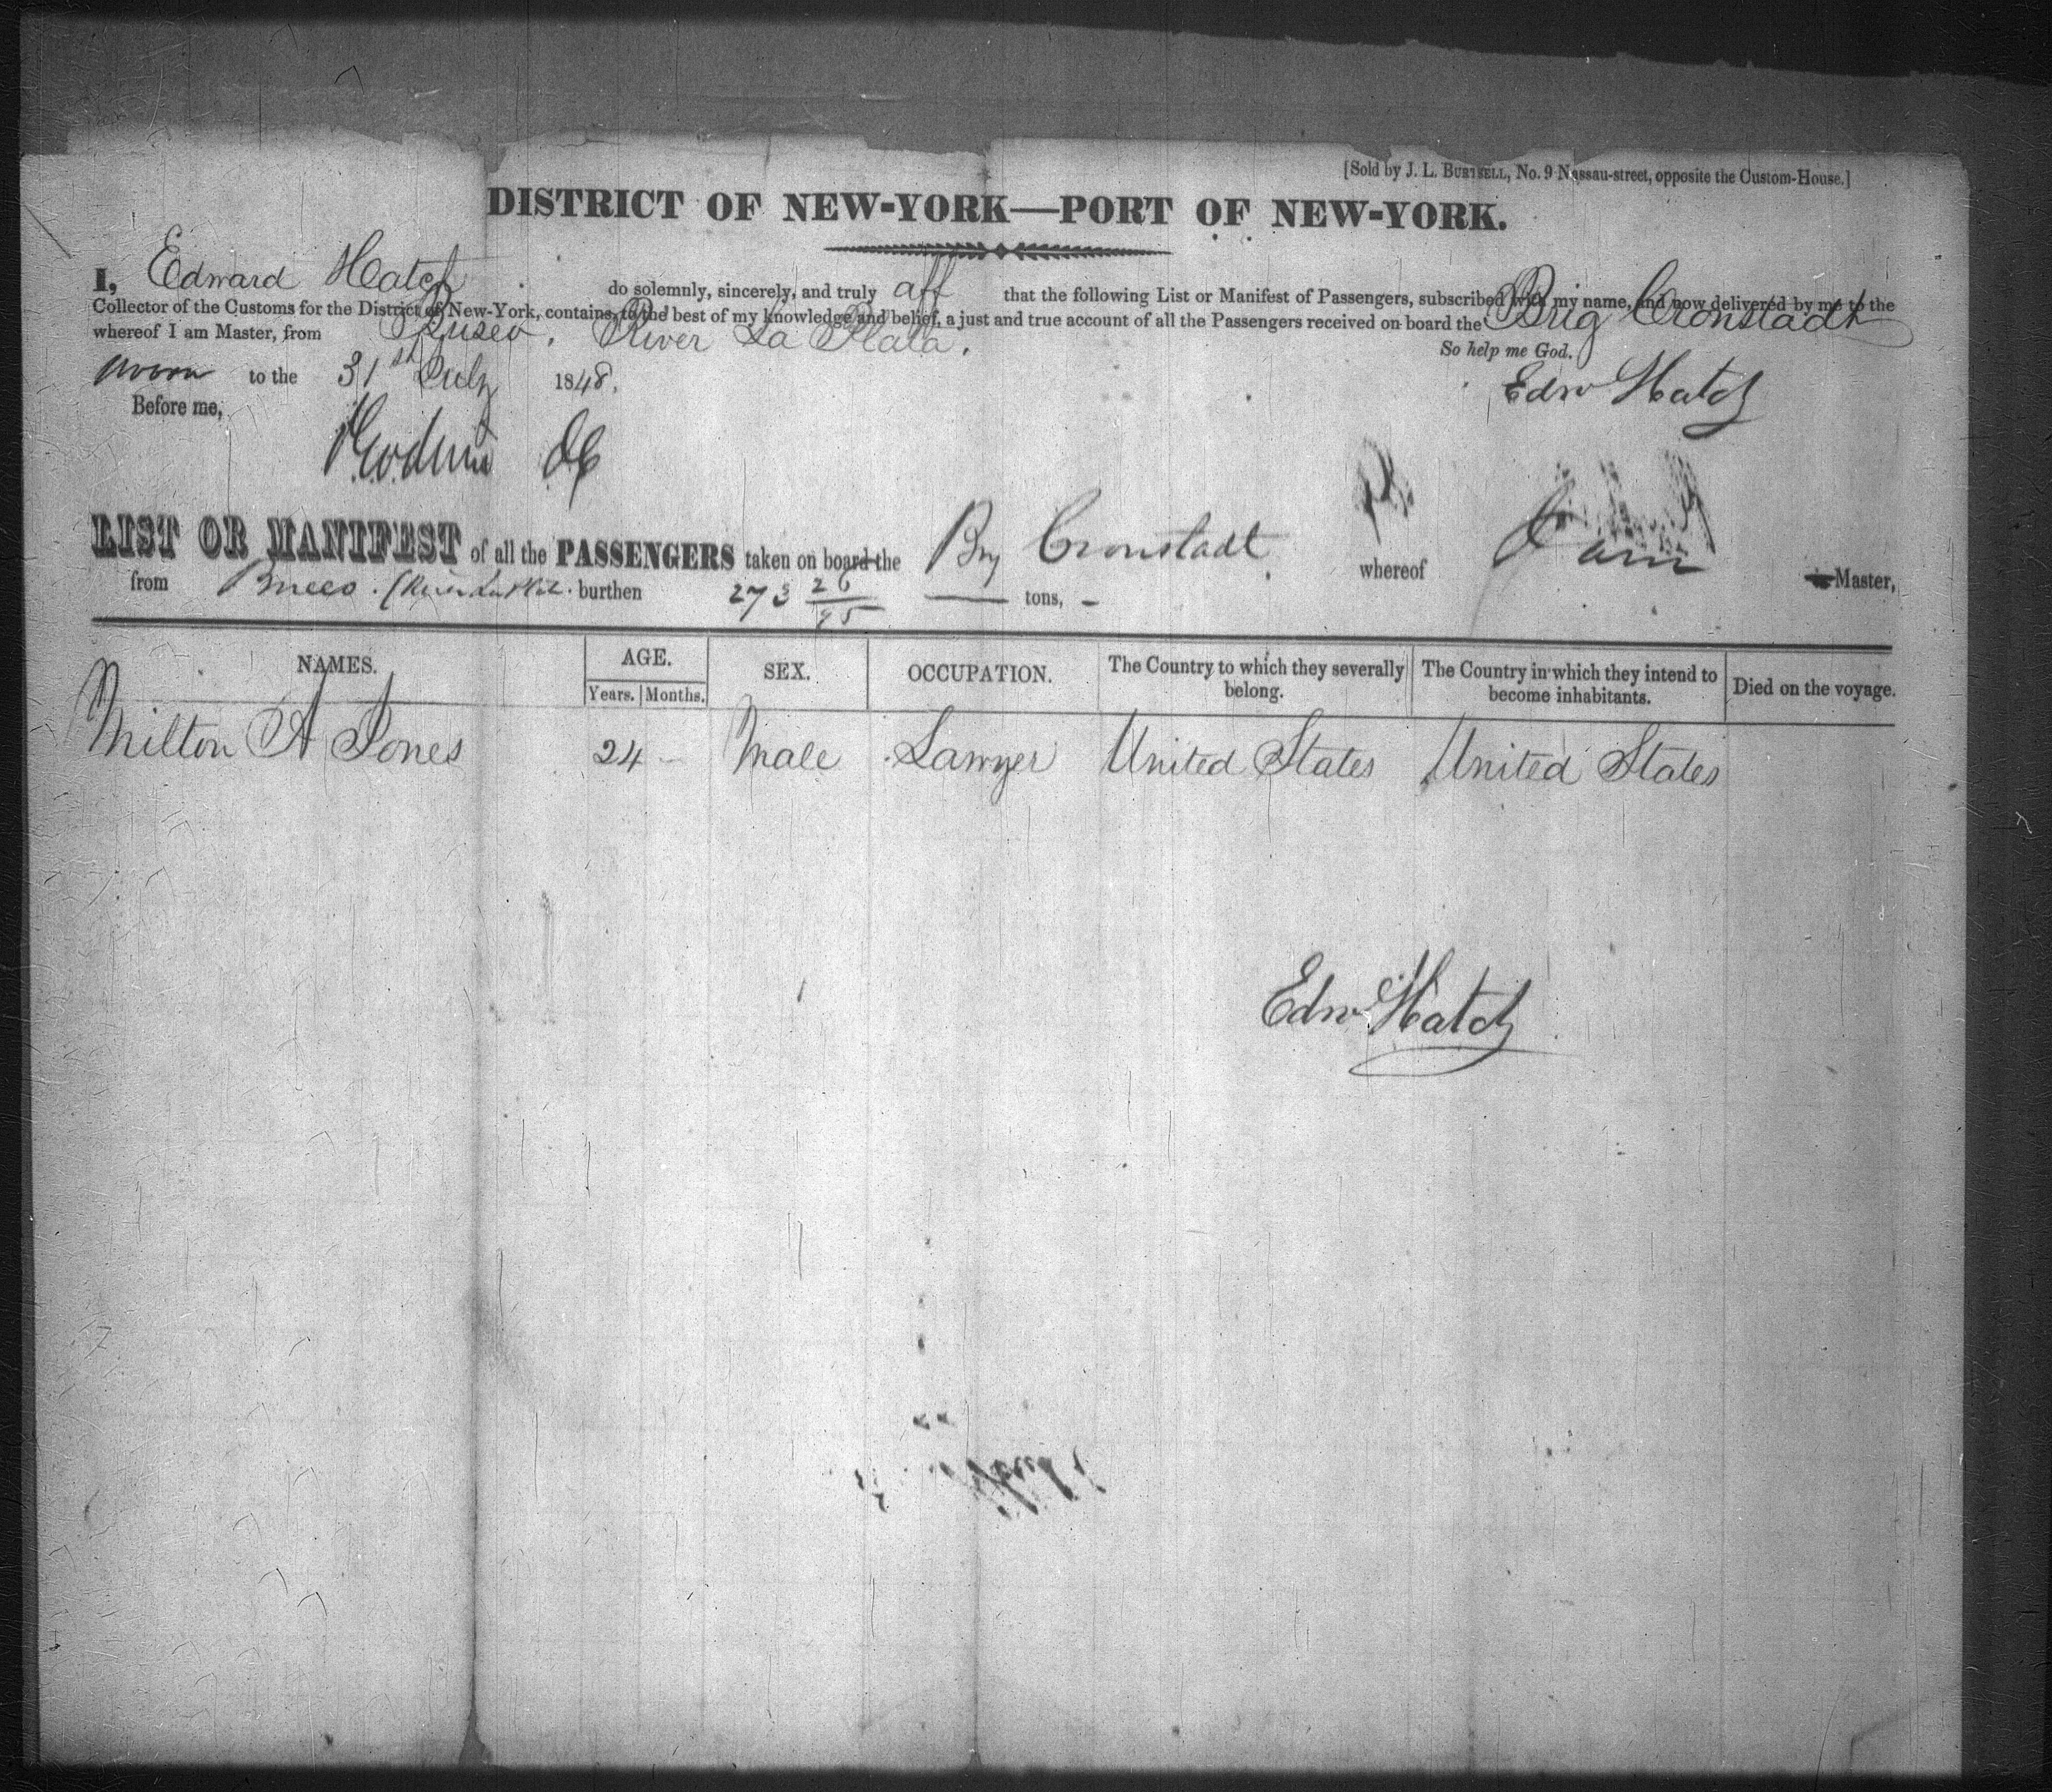 [Sold by J. L. BURTSELL, No. 9 Nassau-street, opposite the Custom-House.]
DISTRICT OF NEW-YORK—PORT OF NEW-YORK.
I, Edward Hatch do solemnly, sincerely, and truly aff that the following List or Manifest of Passengers, subscribed with my name, and now delivered by me to the
Collector of the Customs for the District of New-York, contains, to the best of my knowledge and belief, a just and true account of all the Passengers received on board the Brig Cronstadt
whereof I am Master, from River La Plata.
So help me God.
to the 31st July 1848. Edw Hatch
Before me,
LIST OR MANIFEST of all the PASSENGERS taken on board the Brig Cronstadt whereof Master,
from burthen 273 26/95 tons,
NAMES. AGE. SEX. OCCUPATION. The Country to which they severally belong. The Country in which they intend to become inhabitants. Died on the voyage.
Years. Months.
Milton A Jones 24 Male Lawyer United States United States
Edw Hatch